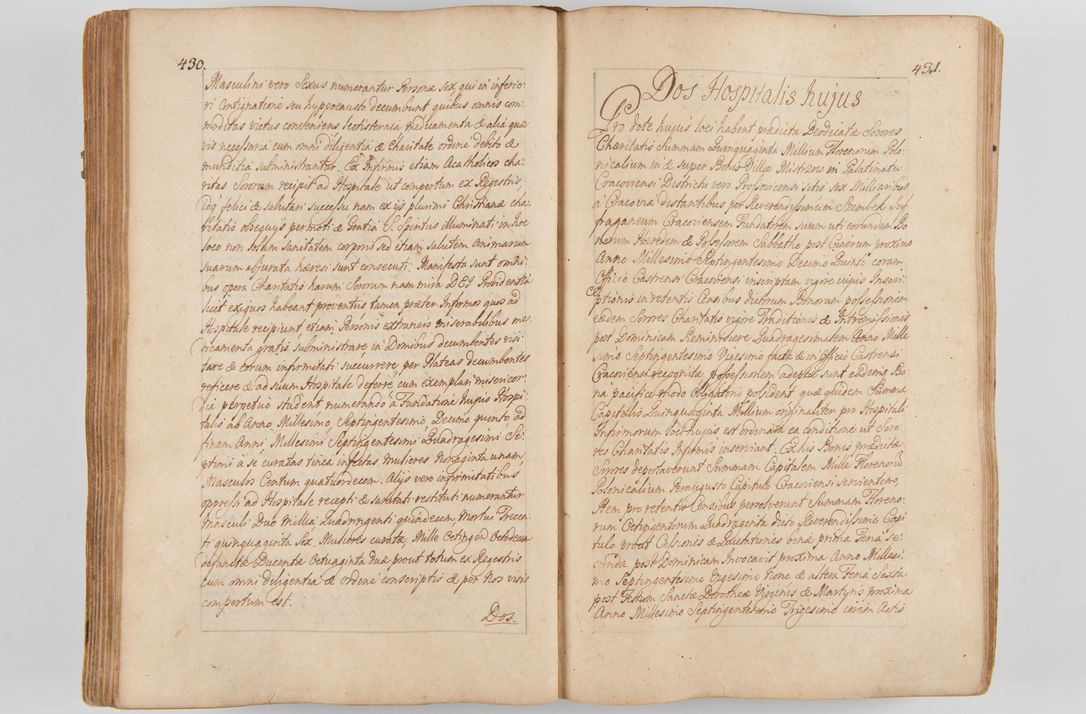 430.
Masculini vero Sexus numerantur Personæ Sex, qui in inferio-
ri Contignatione seu hyppocausto decumbunt quibus omnis com-
moditas victus conveniens Lectisternia Medicamenta & alia quæ-
vis necessaria cum omni diligentia & Charitate ordine debito &
munditia subministrantur. Ex Infirmis etiam Acatholicos cha-
ritas Sororum recipit ad Hospitale ut compertum ex Regestris,
idq felici & salutari successu nam ex ijs plurimi Christianæ cha-
ritatis obsequijs permoti & Gratia S. Spiritus illuminati in hoc
loco non solum sanitatem corporis sed etiam salutem animarum
suarum abjurata hæresi sunt consecuti. Manifesta sunt omni-
bus opera Charitatis harum Sororum nam mira DEI Providentia
licet exiguos habeant proventus tamen præter Infirmos quos ad
Hospitale recipiunt, etiam Personis extraneis miserabilibus me-
dicamenta gratis subministrare, in Domibus decumbentes visi-
tare & eorum infirmitati succurrere, per Plateas decumbentes
reficere & ad suum Hospitale deferre cum exemplari misericor-
dia perpetuo student numerando à Fundatione hujus Hospi-
talis ad Anno Millesimo, Septingentesimo, Decimo quinto, ad
finam Anni, Millesimi Septingentesimi Quadragesimi Se-
ptimi a se curatas tinea infectas mulieres Nonaginta unam,
Masculos Centum quatuordecem. Alijs vero infirmitatibus
oppressi ad Hospitale recepti & sanitati restituti numerantur
masculi Duo Millia Quadringenti quindecem, Mortui Trecen-
ti quinquaginta Sex, Mulieres curatæ, Mille Octingen Octodecem
defunctæ Ducentæ Octuaginta duæ prout totum ex Regestris
cum omni diligentia & ordine conscriptis & per Nos visis
compertum est.
Dos.
431.
Dos Hospitalis hujus
Pro dote hujus loci habent prædictæ Deodicatæ Sorores
Charitatis Summam Quinquaginta Millium Florenorum Polo-
nicalium in & super Bonis Villæ Mistrzow in Palatinatu
Cracoviensi Districtu vero Proszovicensi sitis sex Milliaribus
à Cracovia distantibus per Reverendissimum Szembek Suf-
fraganeum Cracoviensem Fundatorem suum uti eorundem Bo-
norum Hæredem & Possessorem Sabbatho post Cinerum proximo
Anno Millesimo Septingentesimo Decimo Quinto coram
Officio Castrensi Cracoviensi inscriptam vigore cujus Inscri-
ptionis in retentis Censibus dictorum Bonorum possessionem
eædem Sorores Charitatis vigore Traditionis & Intromissionis
post Dominicam Reminiscere Quadragesimalem Anno Mille
simo Septingentesimo Vigesimo factæ & in Officio Castrensi
Cracoviensi recognitæ possessionem adeptæ sunt eademq Bo-
na pacifice modo Obligatorio possident quæ quidem Summa
Capitalis Quinquaginta Millium originaliter pro Hospitali
Infirmorum loci hujus est ordinata ea conditione ut Soro-
res Charitatis Infirmis inserviant. Ex his Bonis prædictæ
Sorores deportaverunt Summam Capitalem Mille Florenorū
Polonicalium Peraugusto Capitulo Cracoviensi servientem,
Item pro retentis Censibus persolverunt Summam Floreno-
rum Octingentorum Quadraginta dicto Reverendissimo Capi
tulo prout Cessiones & Quietationes binæ prima Feria Se-
cunda post Dominicam Invocavit proxima Anno Millesi-
mo Septingentesimo Vigesimo Nono & altera Feria Sexta
post Festum Sanctæ Dorotheæ Virginis & Martyris proxima
Anno Millesimo Septingentesimo Trigesimo coram Actis